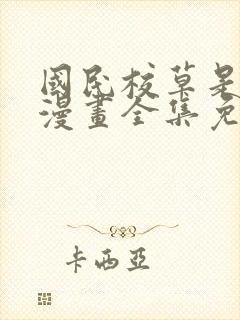 國民校草是
漫畫全集免
卡西亞